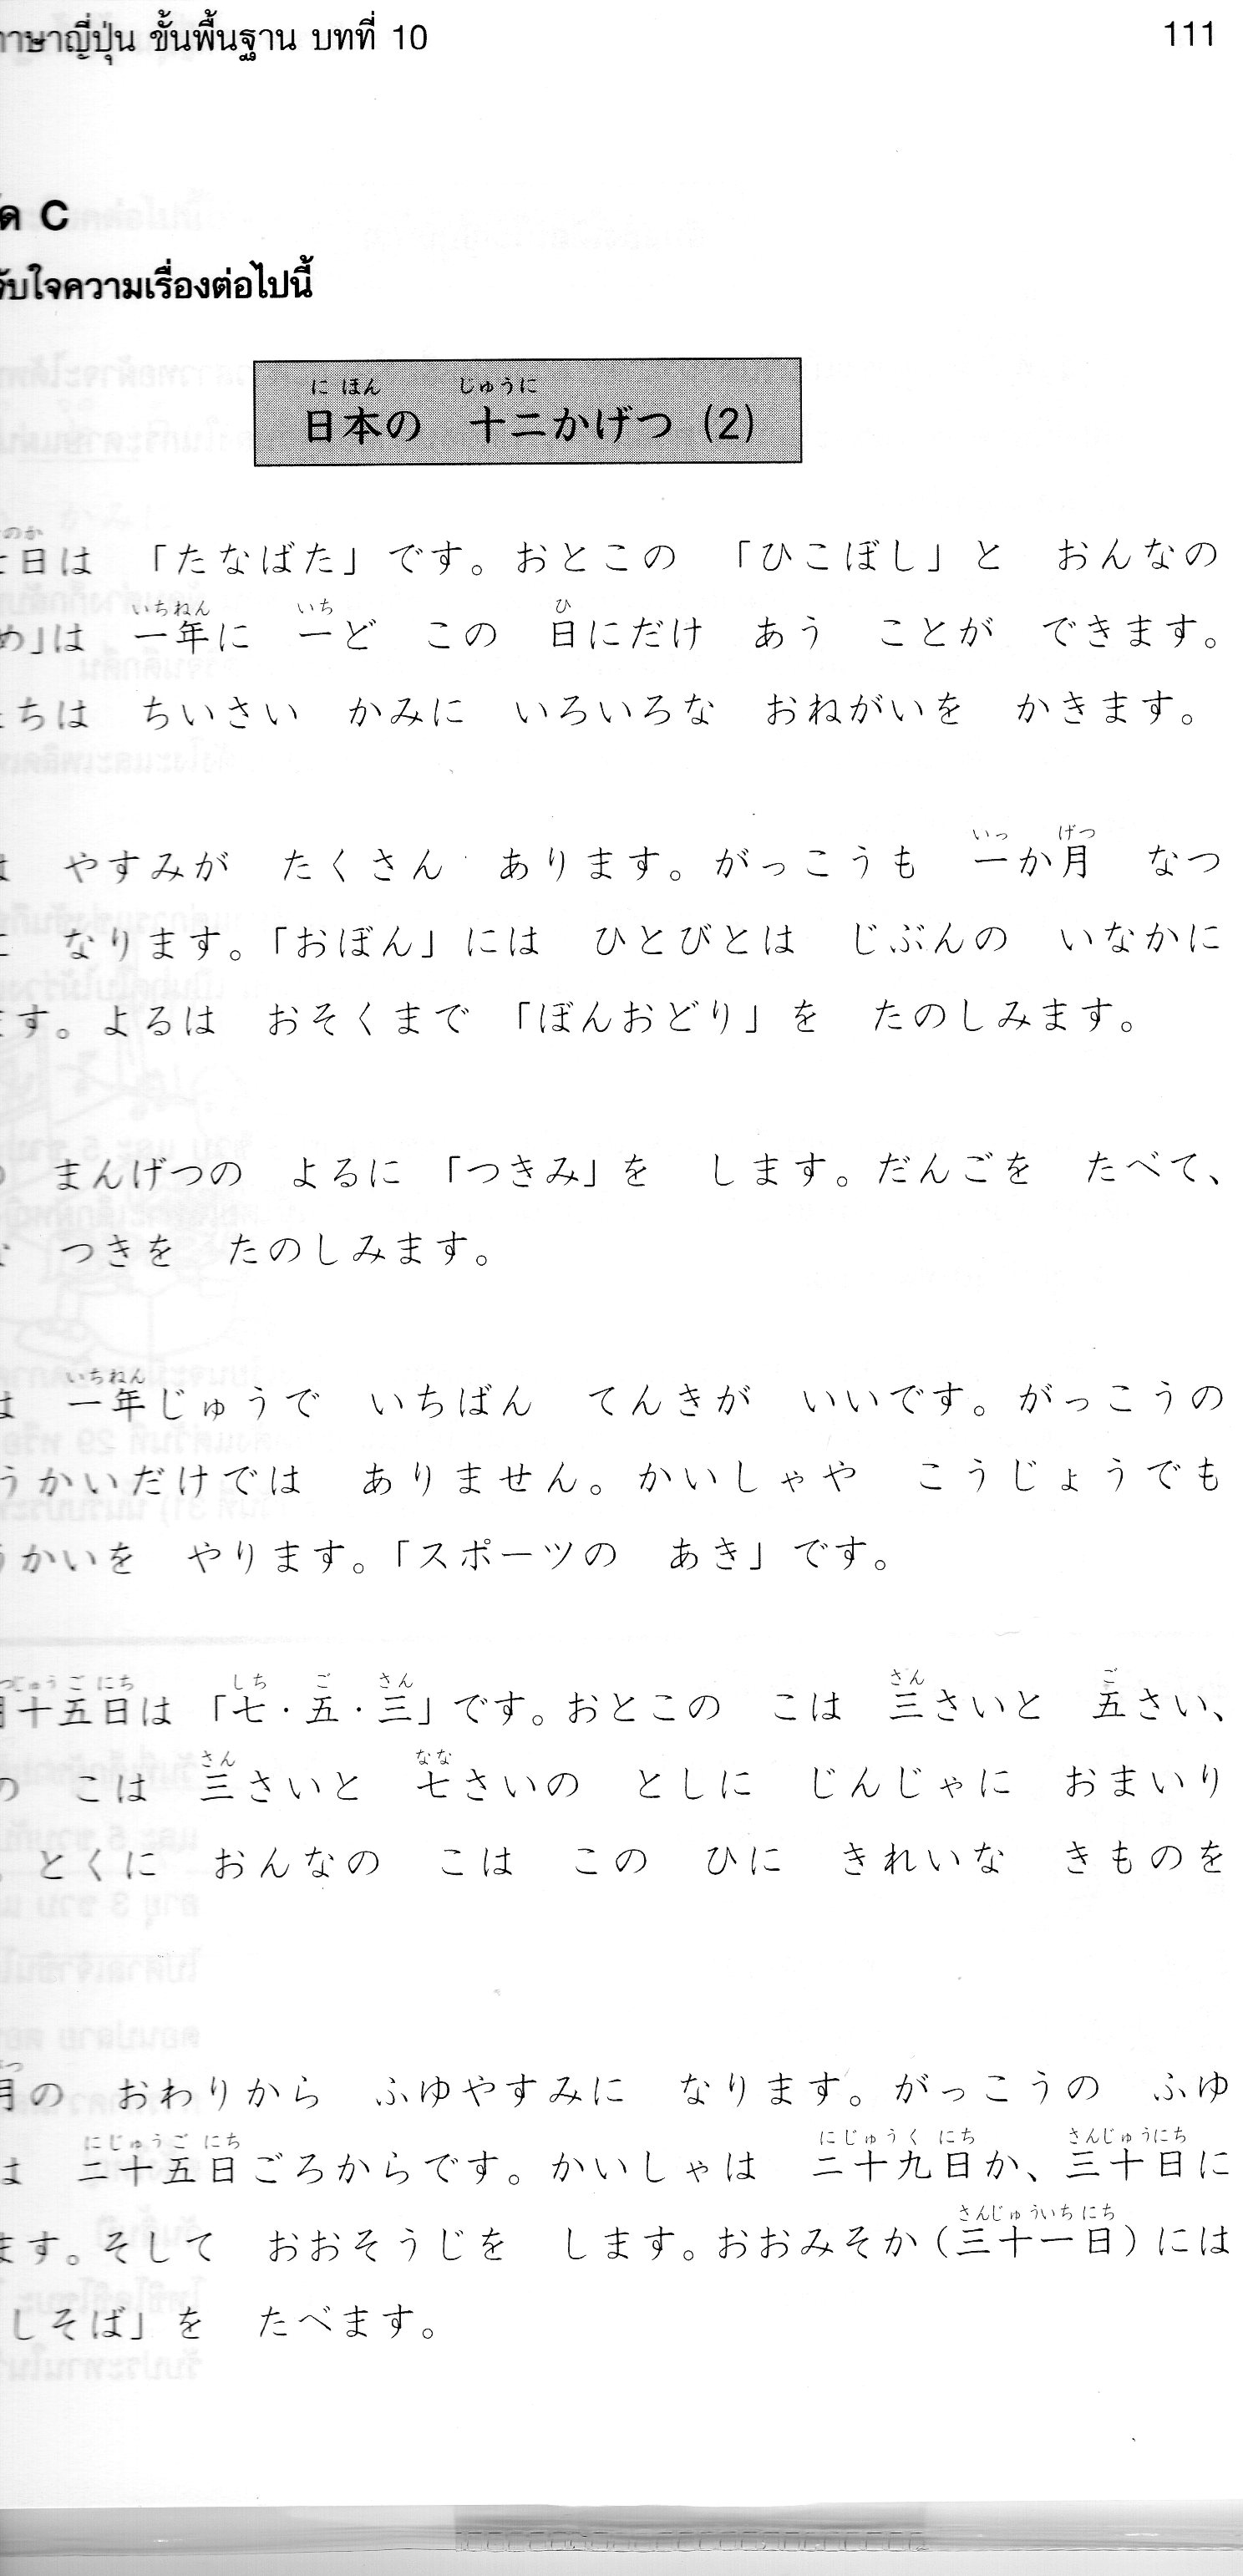 ภาษาญี่ปุ่น ขั้นพื้นฐาน บทที่ 10
111
C
จับใจความเรื่องต่อไปนี้
に ほん じゅうに
日本の 十二かげつ (2)
のか
日は 「たなばた」です。おとこの 「ひこぼし」と おんなの
いちねん いち ひ
め」は 一年に 一ど この 日にだけ あう ことが できます。
ちは ちいさい かみに いろいろな おねがいを かきます。
いっ げつ
は やすみが たくさん あります。がっこうも 一か月 なつ
に なります。「おぼん」には ひとびとは じぶんの いなかに
ます。よるは おそくまで 「ぼんおどり」を たのしみます。
の まんげつの よるに 「つきみ」を します。だんごを たべて、
な つきを たのしみます。
いちねん
は 一年じゅうで いちばん てんきが いいです。がっこうの
うかいだけでは ありません。かいしゃや こうじょうでも
うかいを やります。「スポーツの あき」です。
じゅう ご にち しち ご さん さん ご
月十五日は 「七・五・三」です。おとこの こは 三さいと 五さい、
さん なな
の こは 三さいと 七さいの としに じんじゃに おまいり
。とくに おんなの こは この ひに きれいな きものを
月の おわりから ふゆやすみに なります。がっこうの ふゆ
にじゅうご にち にじゅうく にち さんじゅうにち
は 二十五日ごろからです。かいしゃは 二十九日か、三十日に
さんじゅういち にち
ます。そして おおそうじを します。おおみそか(三十一日)には
しそば」を たべます。